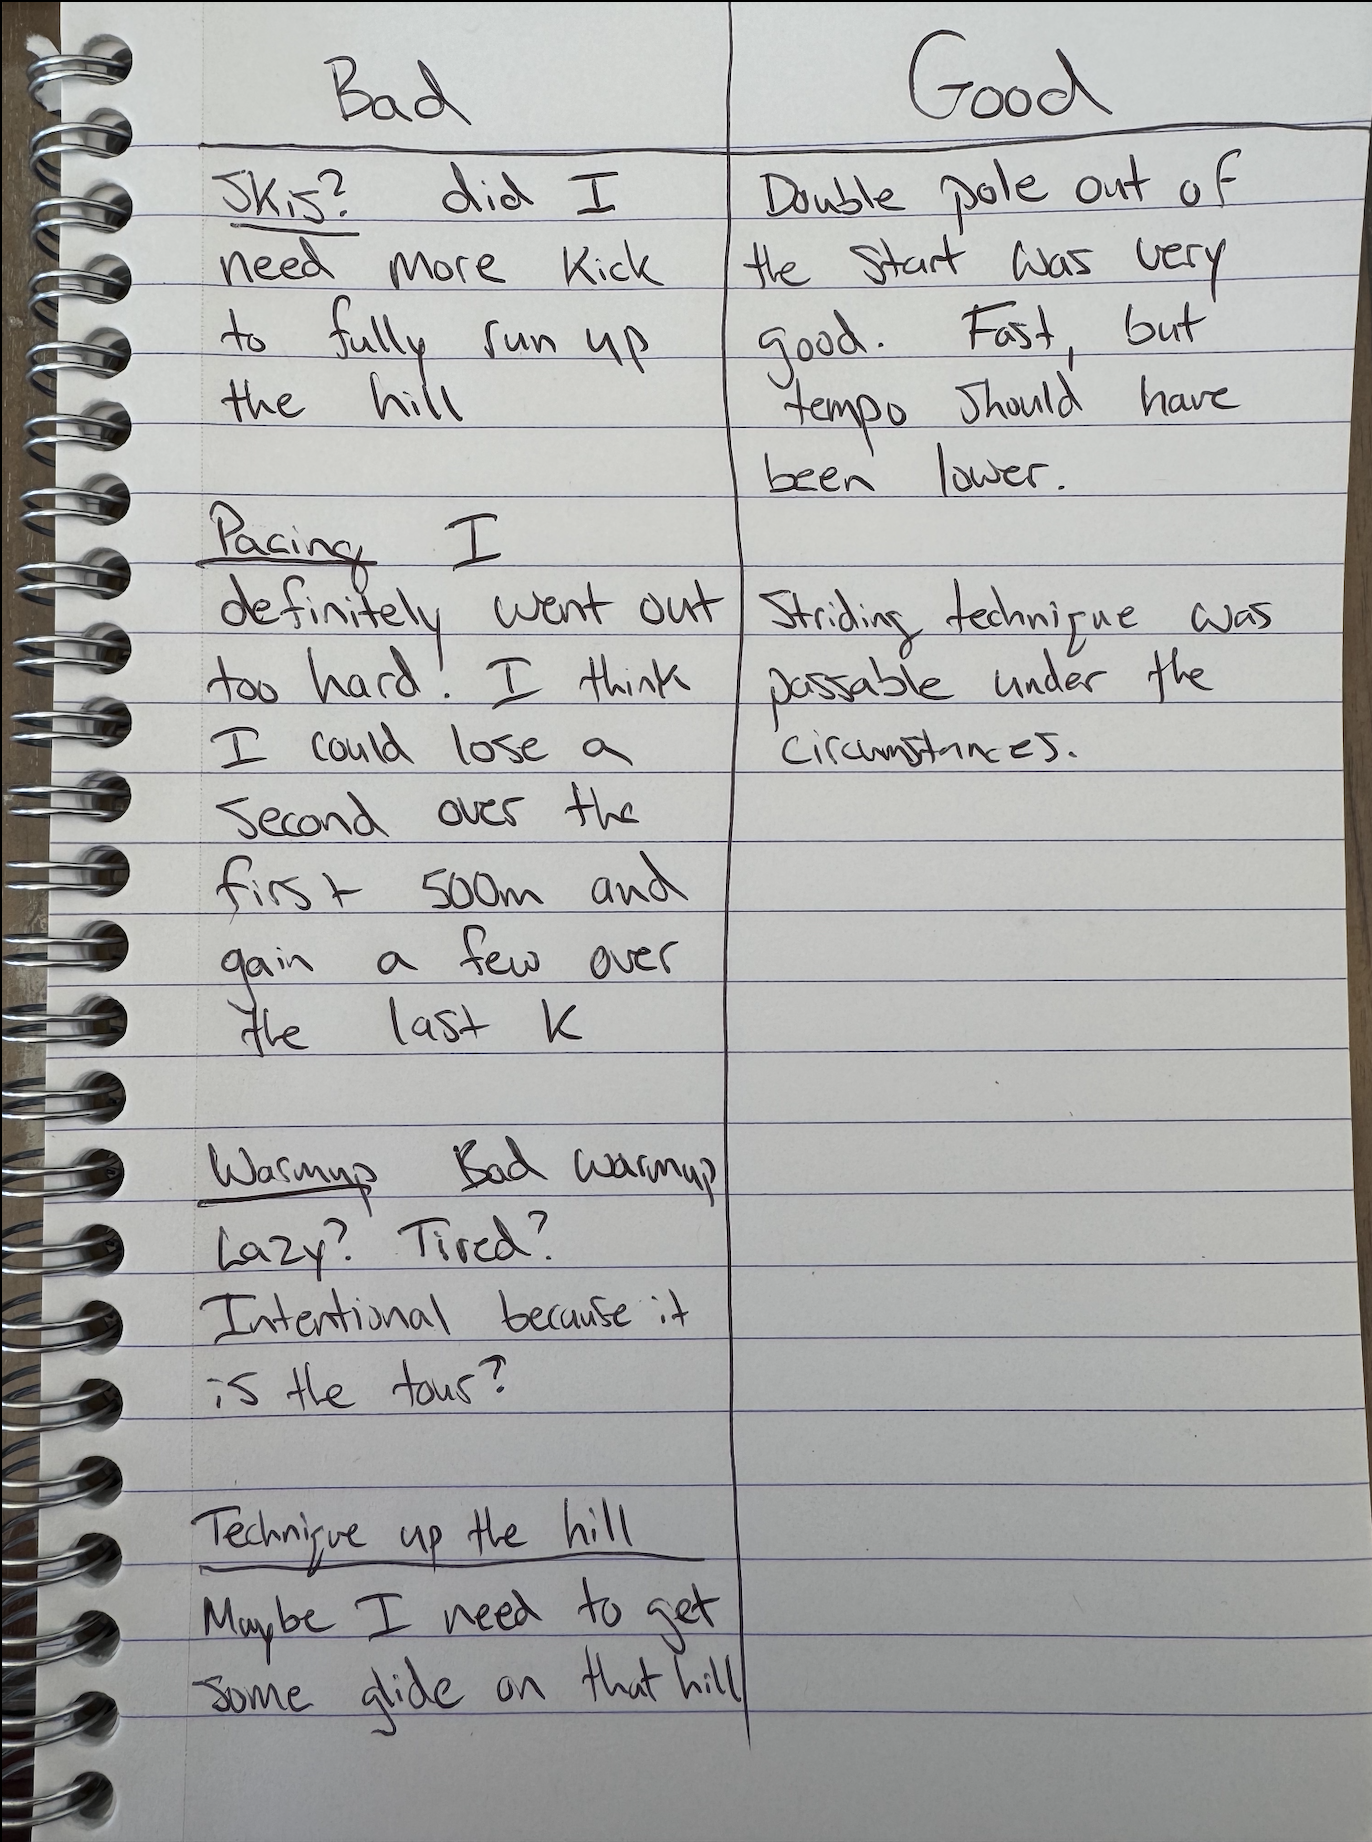 Bad
Skis? did I
need more kick
to fully run up
the hill
Pacing I
definitely went out
too hard! I think
I could lose a
second over the
first 500m and
gain a few over
the last K
Warmup Bad warmup
Lazy? Tired?
Intentional because it
is the tour?
Technique up the hill
Maybe I need to get
some glide on that hill
Good
Double pole out of
the start was very
good. Fast, but
tempo should have
been lower.
Striding technique was
passable under the
circumstances.